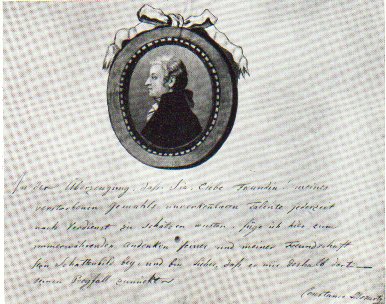 In der Überzeugung, daß Sie, Liebe Freundin! meines
verstorbenen Gemahls unverkennbaren Talente jederzeit
nach Verdienst zu schätzen wusten, füge ich hier zum
immerwährenden andenken seiner und meiner Freundschaft
sein Schattenbild bey, und bin sicher, daß es nur deshalb
seinen
Constance Mozart